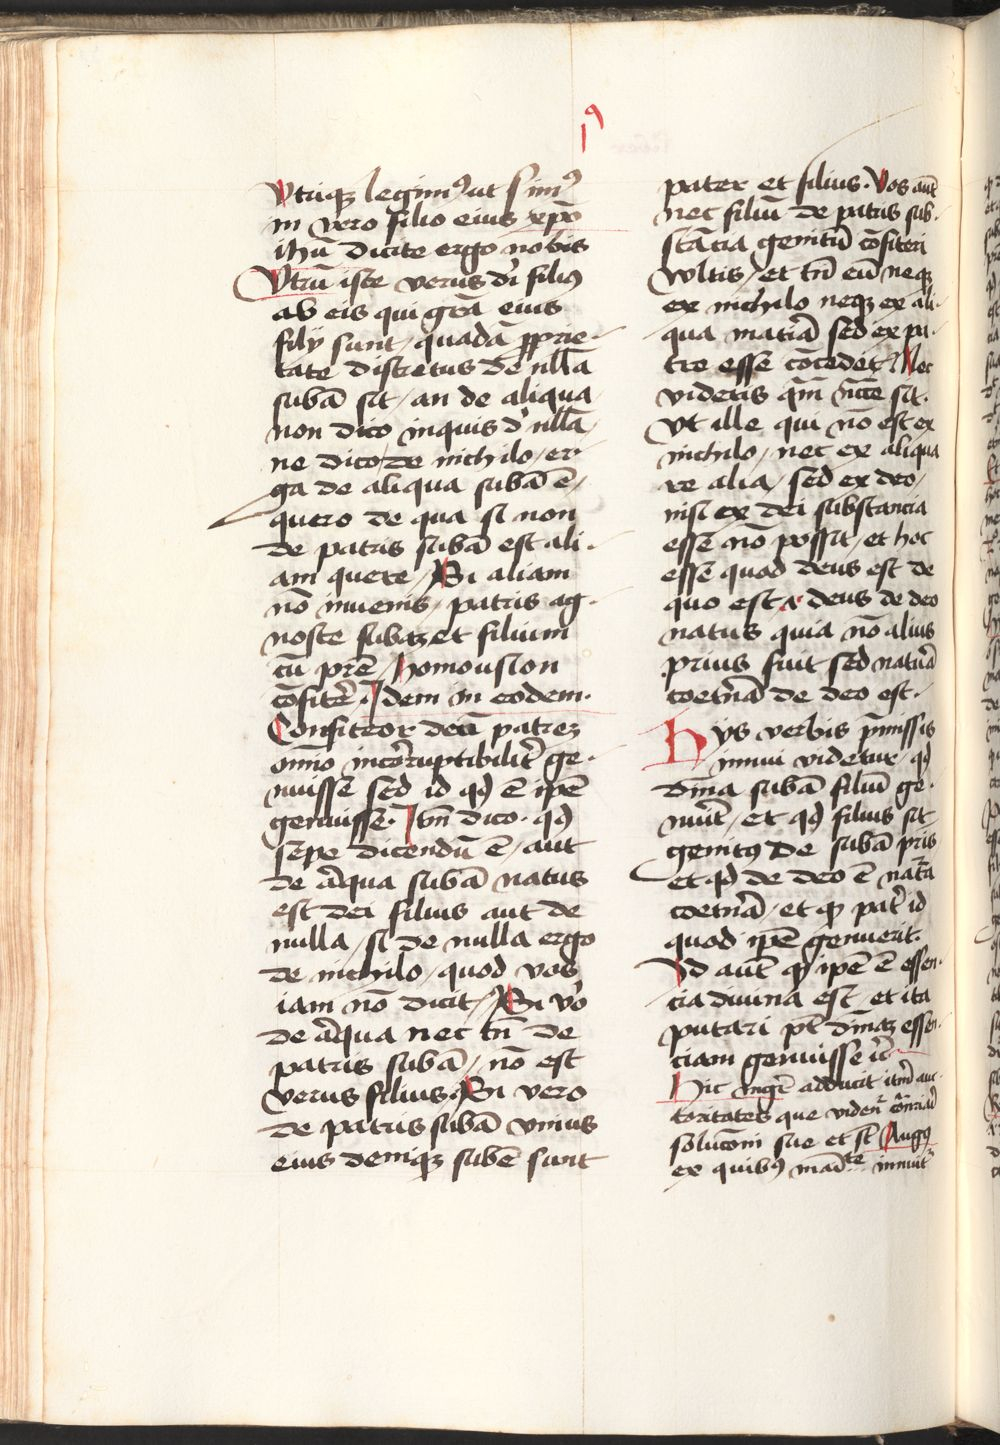 Iꝰ
Vtriqꝫ legimꝰ ut simꝰ
in vero filio eius xp̄o
ihū dicite ergo nobis
Vtrū iste verus di̾ filiꝰ
ab eis qui gr̄a eius
filij sunt / quadā ꝓprie-
tate discretus de nll̄a
subā sit / an de aliqua
non dico inquis d̾ nll̄a /
ne dico de nichilo / er-
go de aliqua subā ē /
quero de qua si non
de patris subā est ali-
am quere / Si aliam
nō inuenis / patris ag-
nosce subāꝫ et filium
cū pr̄e / homousion
cōfiter̄. Idem in eodem.
Confiteor deū patrez
om̄io incōrruptibilit̾ ge-
nuisse sed id qd̾ ē ip̄e
genuisse. Itm̄ dico. qd̾
sepe dicendū ē / aut
de aliqua subā natus
est dei filius aut de
nulla / si de nulla ergo
de nichilo / quod vos
iam nō dicit / Si vo̾
de aliqua nec tn̄ de
patris subā / nō est
verus filius. Si vero
de patris subā vnius
eiusdemqꝫ subē sunt
pater et filius. Vos aut̄
nec filiū de patris sub-
stācia genitū cōfiteri
vultis / et tn̄ eū neqꝫ
ex nichilo neqꝫ ex ali-
qua matiā sed ex pa-
tre esse cōcedet̾. Nec
videtis qm̄ nc̄ce sit.
Vt ille qui nō est ex
nichilo / nec ex aliqua
re alia / sed ex deo /
nisi ex dei substancia
esse nō possit / et hoc
esse quod deus est de
quo est deus de deo
natus quia nō alius
prius fuit sed natūa
coetn̄a de deo est.
Hijs verbis p̄missis
innui videtur / qd̾
diīna subā filiū ge-
nuit̄ / et qd̾ filius sit
genitꝰ de subā pr̄is
et qd̾ de deo ē natūa
coetn̄a / et qd̾ pat̾ id
quod ip̄e genuerit.
Id aut̄ qd̾ ip̄e ē essen-
cia diuina est / et ita
putari pt̄ diīnaꝫ essen-
ciam genuisse
Hic mgr̄ adducit itm̄ auc-
toritates que viden̄t cōn̄riād̾
solucōni sue et sc̄i Augꝰ
ex quibꝰ innuit̾